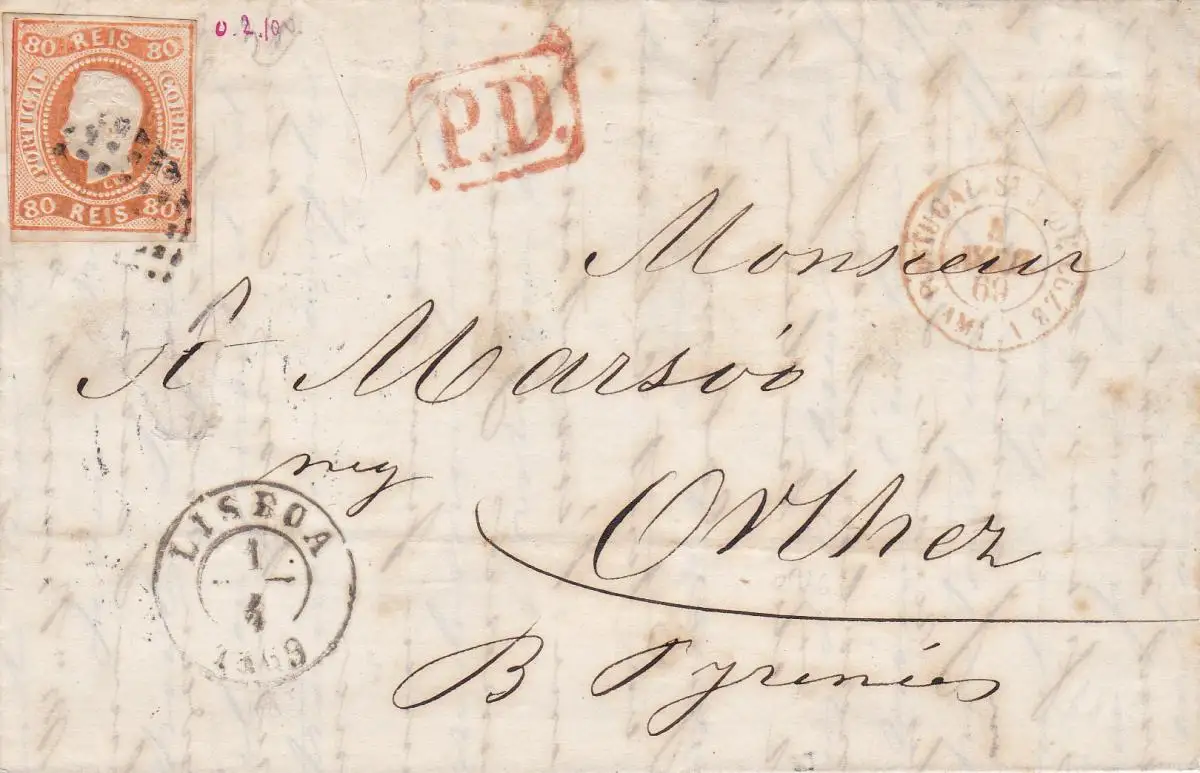 80 REIS 80
PORTUGAL
CORREIO
80 REIS 80
0.2.10
P.D.
PORTUGAL St J. DE LUZ
69
AMB. 1
Monsieur
A Marsoó
neg
Orthez
LISBOA
1
4
1869
B Pyrénées